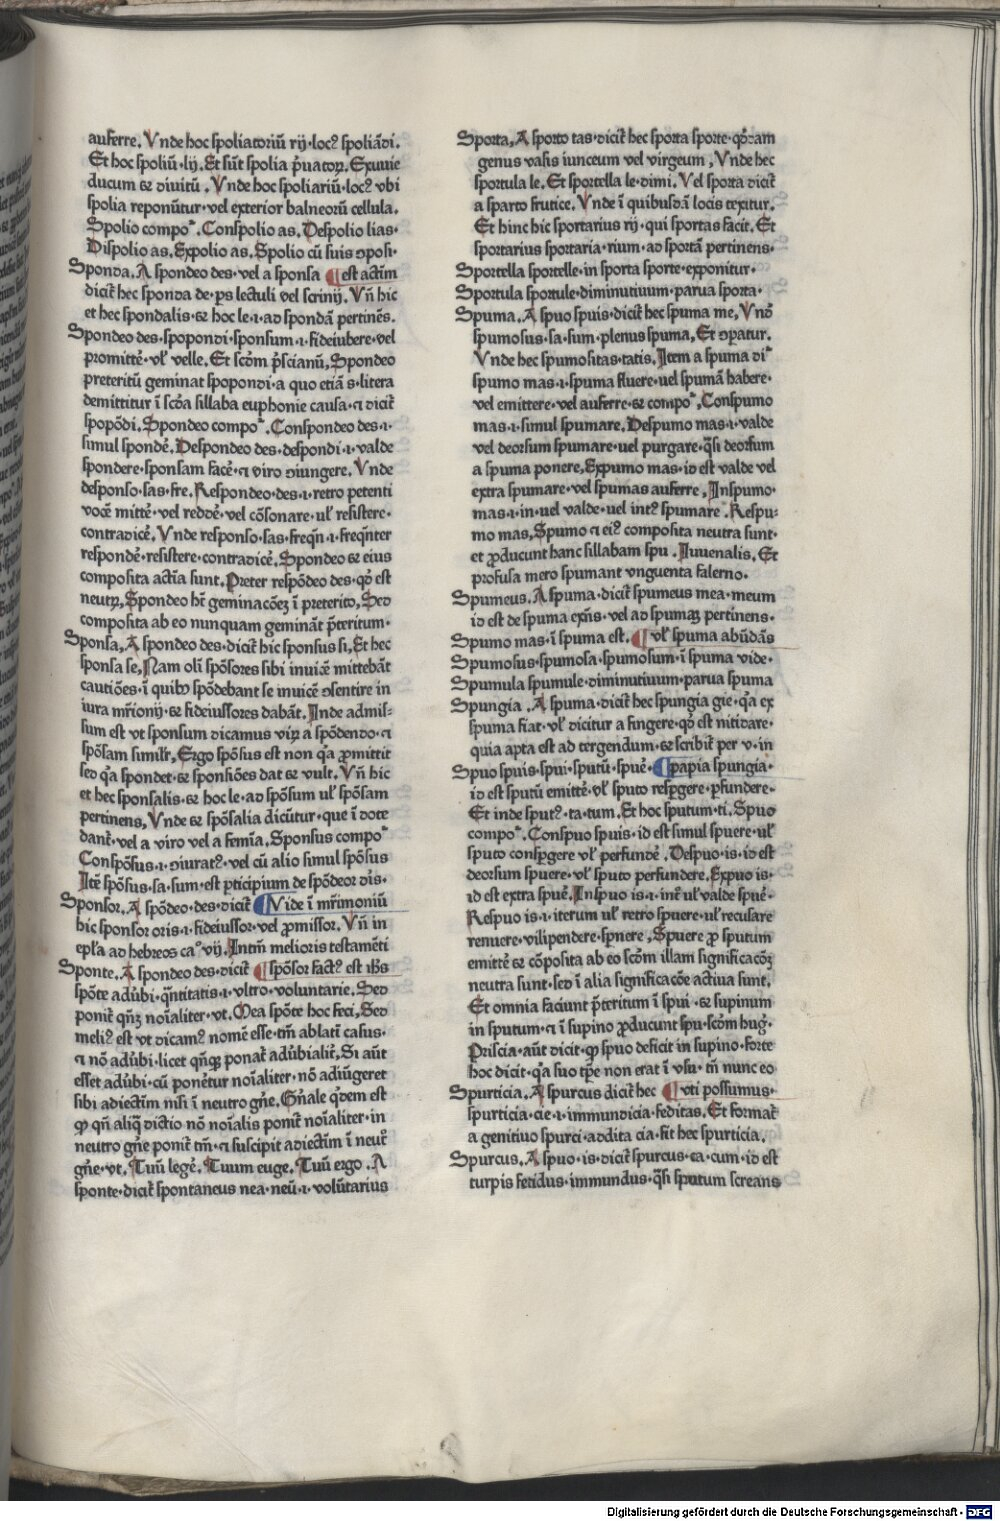 auferre. Vnde hoc spoliatoriū rij·locꝰ spoliādi.
Et hoc spoliū·lij. Et sūt spolia p̄uatoꝝ. Exuuie
ducum ⁊ diuitū. Vnde hoc spoliariū·locꝰ vbi
spolia reponūtur·vel exterior balneorū cellula.
Spolio compoʳ. Conspolio as. Despolio lias·
Dispolio as. Expolio as. Spolio cū suis ꝯposi·
Sponda. A spondeo des·vel a sponsa ¶ est actīm
dicit̄ hec sponda de·ps lectuli vel scrinij. Vn̄ hic
et hec spondalis·⁊ hoc le·i·ad spondā pertinēs.
Spondeo des·spopondi·sponsum·i·fideiubere·vel
promittē·vl̓ velle. Et scōm p̓scianū, Spondeo
preteritū geminat spopondi·a quo etiā s·litera
demittitur ī scōa sillaba euphonie causa·⁊ dicit̄
spopōdi. Spondeo compoʳ. Conspondeo des·i·
simul spondē. Despondeo des·despondi·i·valde
spondere·sponsam facē·⁊ viro ꝯiungere. Vnde
desponso·sas·fre. Respondeo·des·i·retro petenti
vocē mittē·vel reddē·vel cōsonare·ul̓ resistere·
contradicē. Vnde responso·sas·freqn̄·i·freqn̄ter
respondē·resistere·contradicē. Spondeo ⁊ eius
composita actīa sunt. Preter respōdeo des·qd̓ est
neutꝝ, Spondeo ht̄ geminacōeꝫ ī preterito, Sed
composita ab eo nunquam gemināt p̄teritum·
Sponsa, A spondeo des·dicit̄ hic sponsus si, Et hec
sponsa se, Nam olī spōsores sibi inuicē mittebāt
cautiōes·ī quibꝰ spōdebant se inuicē ꝯsentire in
iura mr̄ionij·⁊ fideiussores dabāt. Inde admis-
sum est vt sponsum dicamus viꝝ a spōdendo·⁊
spōsam simil̓r, Ergo spōsus est non q̓a ꝓmittit
sed q̓a spondet·⁊ sponsiōes dat ⁊ vult. Vn̄ hic
et hec sponsalis·⁊ hoc le·ad spōsum ul̓ spōsam
pertinens, Vnde ⁊ spōsalia dicūtur·que ī dote
dant̄·vel a viro vel a femīa. Sponsus compoʳ
Conspōsus·i·ꝯiuratꝰ·vel cū alio simul spōsus
Itē spōsus·sa·sum·est ꝑticipium de spōdeor dīs·
Sponsor. A spōdeo·des·dicit̄ ¶ Vide ī mr̄imoniū
hic sponsor oris·i·fideiussor·vel ꝓmissor. Vn̄ in
epl̓a ad hebreos caᵒ vij. Intm̄ melioris testamēti
Sponte. A spondeo des·dicit̄ ¶ spōsor factꝰ est ihs̄
spōte adūbi·qn̄titatis·i·vltro·voluntarie. Sed
ponit̄ qn̄ꝫ noīaliter·vt. Mea spōte hoc feci, Sed
meliꝰ est vt dicamꝰ nomē esse·tm̄ ablatī casus·
⁊ nō adūbi·licet qn̄qꝫ ponat̄ adūbialit̄, Si aūt
esset adūbi·cū ponēt̄ur noīaliter·nō adiūgeret
sibi adiectīm nisi ī neutro gn̄e. Gn̄ale q̓dem est
ꝙ qn̄ aliq̄ dictio nō noīalis ponit̄ noīaliter·in
neutro gn̄e ponit̄ tm̄·⁊ suscipit adiectīm ī neutr̄
gn̄e·vt. Tuū legē. Tuum euge. Tuū ergo. A
sponte·dicit̄ spontaneus nea·neū·i·volūtarius
Sporta, A sporto tas·dicit̄ hec sporta sporte·qd̓dam
genus vasis iunceum vel virgeum, Vnde hec
sportula le. Et sportella le·dimi. Vel sporta dicit̄
a sparto frutice. Vnde ī quibusdā locis texitur.
Et hinc hic sportarius rij·qui sportas facit. Et
sportarius sportaria·rium·ad sportā pertinens·
Sportella sportelle·in sporta sporte·exponitur·
Sportula sportule·diminutiuum·parua sporta·
Spuma. A spuo spuis·dicit̄ hec spuma me, Vnd̓
spumosus·sa·sum·plenus spuma, Et ꝯpatur.
Vnde hec spumositas·tatis. Item a spuma diʳ
spumo mas·i·spuma fluere·uel spumā habere·
vel emittere·vel auferre·⁊ compoʳ, Conspumo
mas·i·simul spumare. Despumo mas·i·valde
vel deorsum spumare·uel purgare·q̓si deorsum
a spuma ponere, Expumo mas·id est valde vel
extra spumare·vel spumas auferre, Inspumo·
mas·i·in·uel valde·uel intꝰ spumare. Respu-
mo mas, Spumo ⁊ eiꝰ composita neutra sunt·
et ꝓducunt hanc sillabam spu. Iuuenalis, Et
profusa mero spumant vnguenta falerno.
Spumeus. A spuma·dicit̄ spumeus mea·meum
id est de spuma exn̄s·vel ad spumaꝫ pertinens.
Spumo mas·ī spuma est. ¶ vl̓ spuma abūdās
Spumosus·spumosa·spumosum·ī spuma vide·
Spumula spumule·diminutiuum·parua spuma
Spungia. A spuma·dicit̄ hec spungia gie·q̓a ex
spuma fiat·vl̓ dicitur a fingere·qd̓ est nitidare·
quia apta est ad tergendum·⁊ scribit̄ per v·in
Spuo spuis·spui·sputū·spuē· ¶ papia spungia·
id est sputū emittē·vl̓ sputo resꝑgere·ꝑfundere·
Et inde sputꝰ·ta·tum. Et hoc sputum·ti. Spuo
compoʳ. Conspuo spuis·id est simul spuere·ul̓
sputo conspgere vl̓ perfundē. Despuo·is·id est
deorsum spuere·vl̓ sputo perfundere. Expuo is·
id est extra spuē. Inspuo is·i·int̄ ul̓ valde spuē·
Respuo is·i·iterum ul̓ retro spuere·ul̓ recusare
renuere·vilipendere·sp̄nere, Spuere ꝓ sputum
emittē ⁊ cōposita ab eo scōm illam significacōꝫ
neutra sunt·sed ī alia significacōe actiua sunt.
Et omnia faciunt p̄teritum ī spui·⁊ supinum
in sputum·⁊ ī supino ꝓducunt spu·scōm hug̓.
Priscia·aūt dicit·ꝙ spuo deficit in supino·forte
hoc dicit·q̓a suo tp̄e non erat ī vsu·tn̄ nunc eo
Spurticia. A spurcus dicit̄ hec ¶ vti possumus·
spurticia·cie·i·immundicia·feditas. Et format̄
a genitiuo spurci·addita cia·fit hec spurticia.
Spurcus. A spuo·is·dicit̄ spurcus·ca·cum·id est
turpis fetidus·immundus·q̓si sputum screans
Digitalisierung gefördert durch die Deutsche Forschungsgemeinschaft - DFG